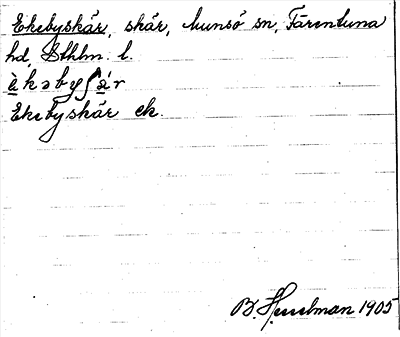 Ekebyskär, skär, Munsö sn, Färentuna
hd, Sthlm. l.
è̱kəbyʃä́r
Ekebyskär ek.
B. Hesselman 1905